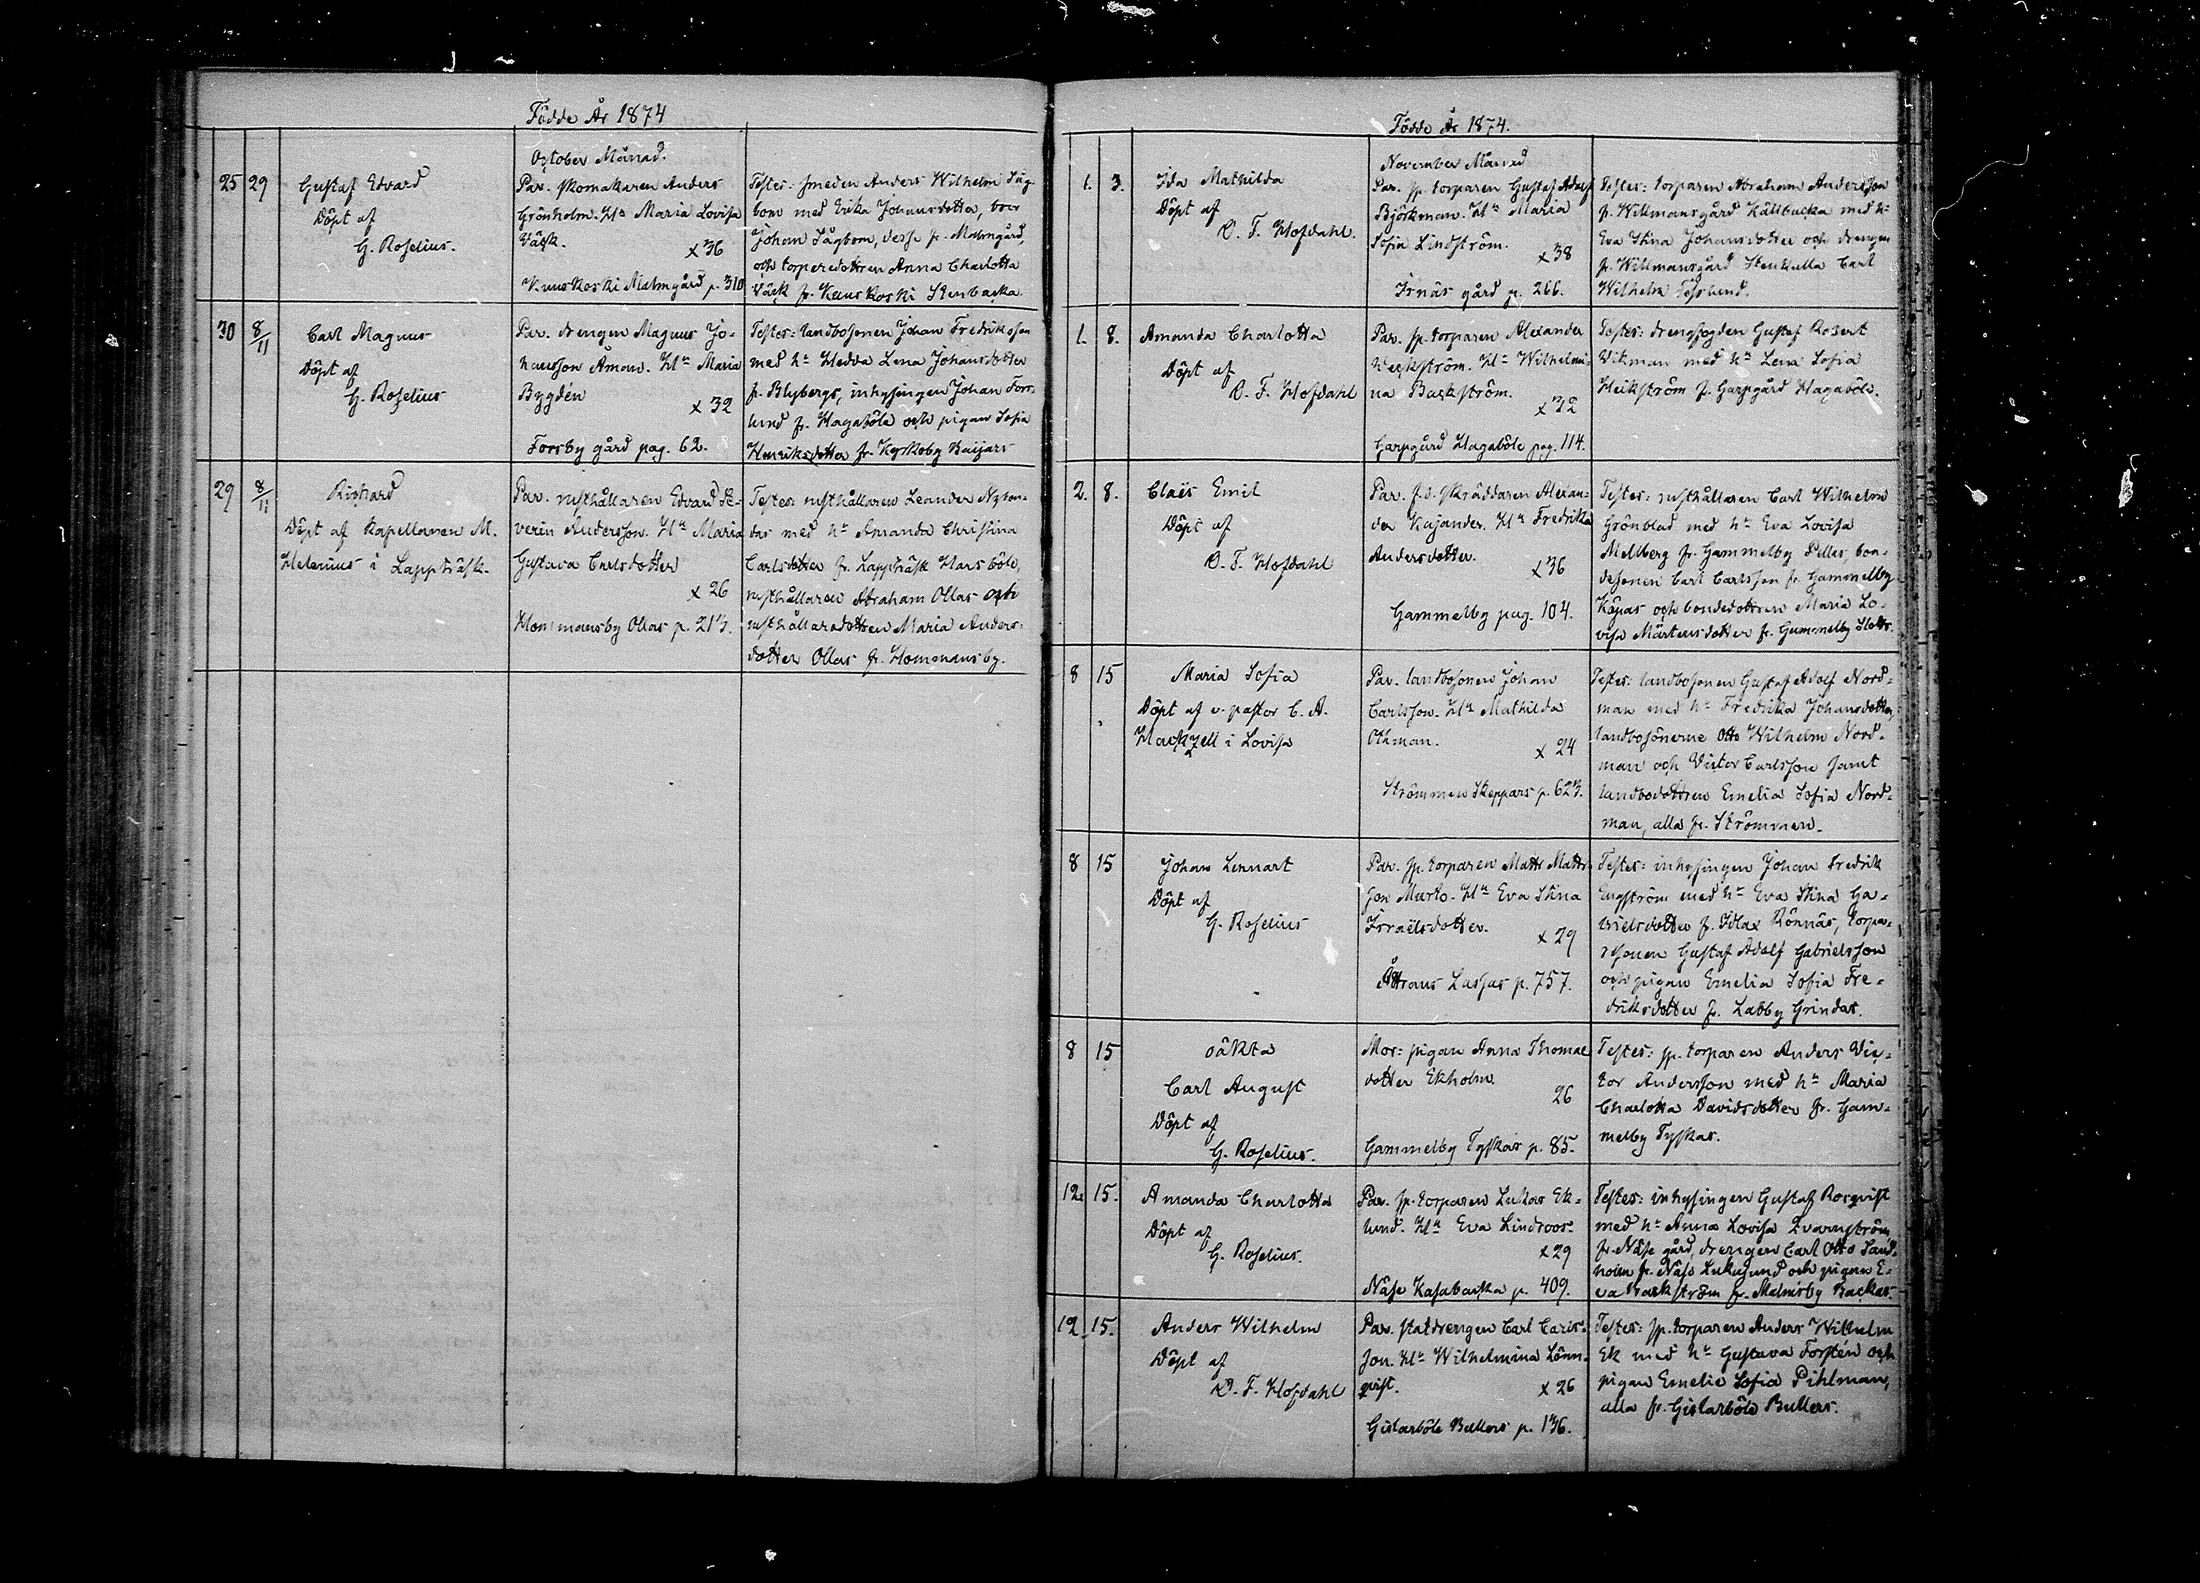 Födde År 1874
October Månad.
25 29 Gustaf Edvard
Döpt af
G. Roselius.
Par. skomakaren Anders
Grönholm. Hn Maria Lovisa
Väck.
x 36
Kuuskoski Malmgård p. 310
Testes: smeden Anders Wilhelm Såg-
bom med Erika Johansdotter, bror
Johan Sågbom, desse fr. Malmgård,
och torparedottren Anna Charlotta
Väck fr. Kuuskoski Stenbacka.
30 8/11 Carl Magnus
Döpt af
G. Roselius
Par. drengen Magnus Jo-
hansson Åman. Hn Maria
Bygdén
x 32
Forsby gård pag. 62.
Testes: landbosonen Johan Fredriksson
med hn Hedda Lena Johansdotter
fr. Blybergs, inhysingen Johan Fors-
lund fr. Hagaböle och pigan Sofia
Henriksdotter fr. Kyrkoby Baijars
29 8/11 Richard
Döpt af kapellanen M.
Helenius i Lappträsk.
Par. rusthållaren Edvard Se-
verin Andersson. Hn Maria
Gustava Carlsdotter
x 26
Hommansby Ollas p. 213.
Testes: rusthållaren Leander Nybon-
das med hn Amanda Christina
Carlsdotter fr. Lappträsk Harsböle,
rusthållaren Abraham Ollas och
rusthållaredottren Maria Anders-
dotter Ollas fr. Hommansby.
Födde År 1874.
November Månad
1. 3. Ida Mathilda
Döpt af
O. F. Hofdahl.
Par. sp. torparen Gustaf Adolf
Björkman. Hn Maria
Sofia Lindström.
x 38
Isnäs gård p. 266.
Testes: torparen Abraham Andersson
fr. Willmansgård Källbacka med hn
Eva Stina Johansdotter och drengen
fr. Willmansgård Stenkulla Carl
Wilhelm
1. 8. Amanda Charlotta
Döpt af
O. F. Hofdahl
Par. sp. torparen Alexander
Weckström. Hn Wilhelmi-
na Backström.
x 32
Garpgård Hagaböle pag. 114.
Testes: drengfogden Gustaf Robert
Vikman med hn Lena Sofia
Heikström fr. Garpgård Hagaböle.
2. 8. Claës Emil
Döpt af
O. F. Hofdahl
Par. f.d. skräddaren Alexan-
der Kajander. Hn Fredrika
Andersdotter.
x 36
Gammelby pag. 104.
Testes: rusthållaren Carl Wilhelm
Grönblad med hn Eva Lovisa
Mellberg fr. Gammelby Pellas, bon-
desonen Carl Carlsson fr. Gammelby
Käpas och bondedottren Maria Lo-
visa Mårtensdotter fr. Gammelby Slotts.
8 15 Maria Sofia
Döpt af v. pastor C. A.
Hackzell i Lovisa
Par. landbosonen Johan
Carlsson. Hn Mathilda
Öhman.
x 24
Strömmen Skeppars p. 623.
Testes: landbosonen Gustaf Adolf Nord-
man med hn Fredrika Johansdotter,
landbosönerne Otto Wilhelm Nord-
man och Victor Carlsson samt
landbodottren Emelia Sofia Nord-
man, alla fr. Strömmen.
8 15 Johan Lennart
Döpt af
G. Roselius
Par. sp. torparen Matts Matts-
son Murto. Hn Eva Stina
Israëlsdotter.
x 29
Lassas p. 757.
Testes: inhysingen Johan Fredrik
Engström med hn Eva Stina Ga-
brielsdotter fr. Idlax Rönnäs, torpa-
resonen Gustaf Adolf Gabrielsson
och pigan Emelia Sofia Fre-
driksdotter fr. Labby Grindas.
8 15 oäkta
Carl August
Döpt af
G. Roselius.
Mor: pigan Anna Thomae
dotter Ekholm.
26
Gammelby Tyskas p. 85.
Testes: sp. torparen Anders Vic-
tor Andersson med hn Maria
Charlotta Davidsdotter fr. Gam-
melby Tyskas.
12. 15. Amanda Charlotta
Döpt af
G. Roselius.
Par. sp. torparen Lukas Ek-
lund. Hn Eva Lindroos.
x 29
Näse Kasabacka p. 409.
Testes: inhysingen Gustaf Rosqvist
med hn Anna Lovisa Qvarnström
fr. Näse gård, drengen Carl Otto Sand-
holm fr. Näse och pigan E-
va Backström fr. Malmsby Backas.
12. 15. Anders Wilhelm
Döpt af
O. F. Hofdahl
Par. statdrengen Carl Carls-
son. Hn Wilhelmina Lönn-
qvist.
x 26
Gislarböle Bullers p. 136.
Testes: sp. torparen Anders Wilhelm
Ek med hn Gustava Forstén och
pigan Emelie Sofia Pihlman,
alla fr. Gislarböle Bullers.